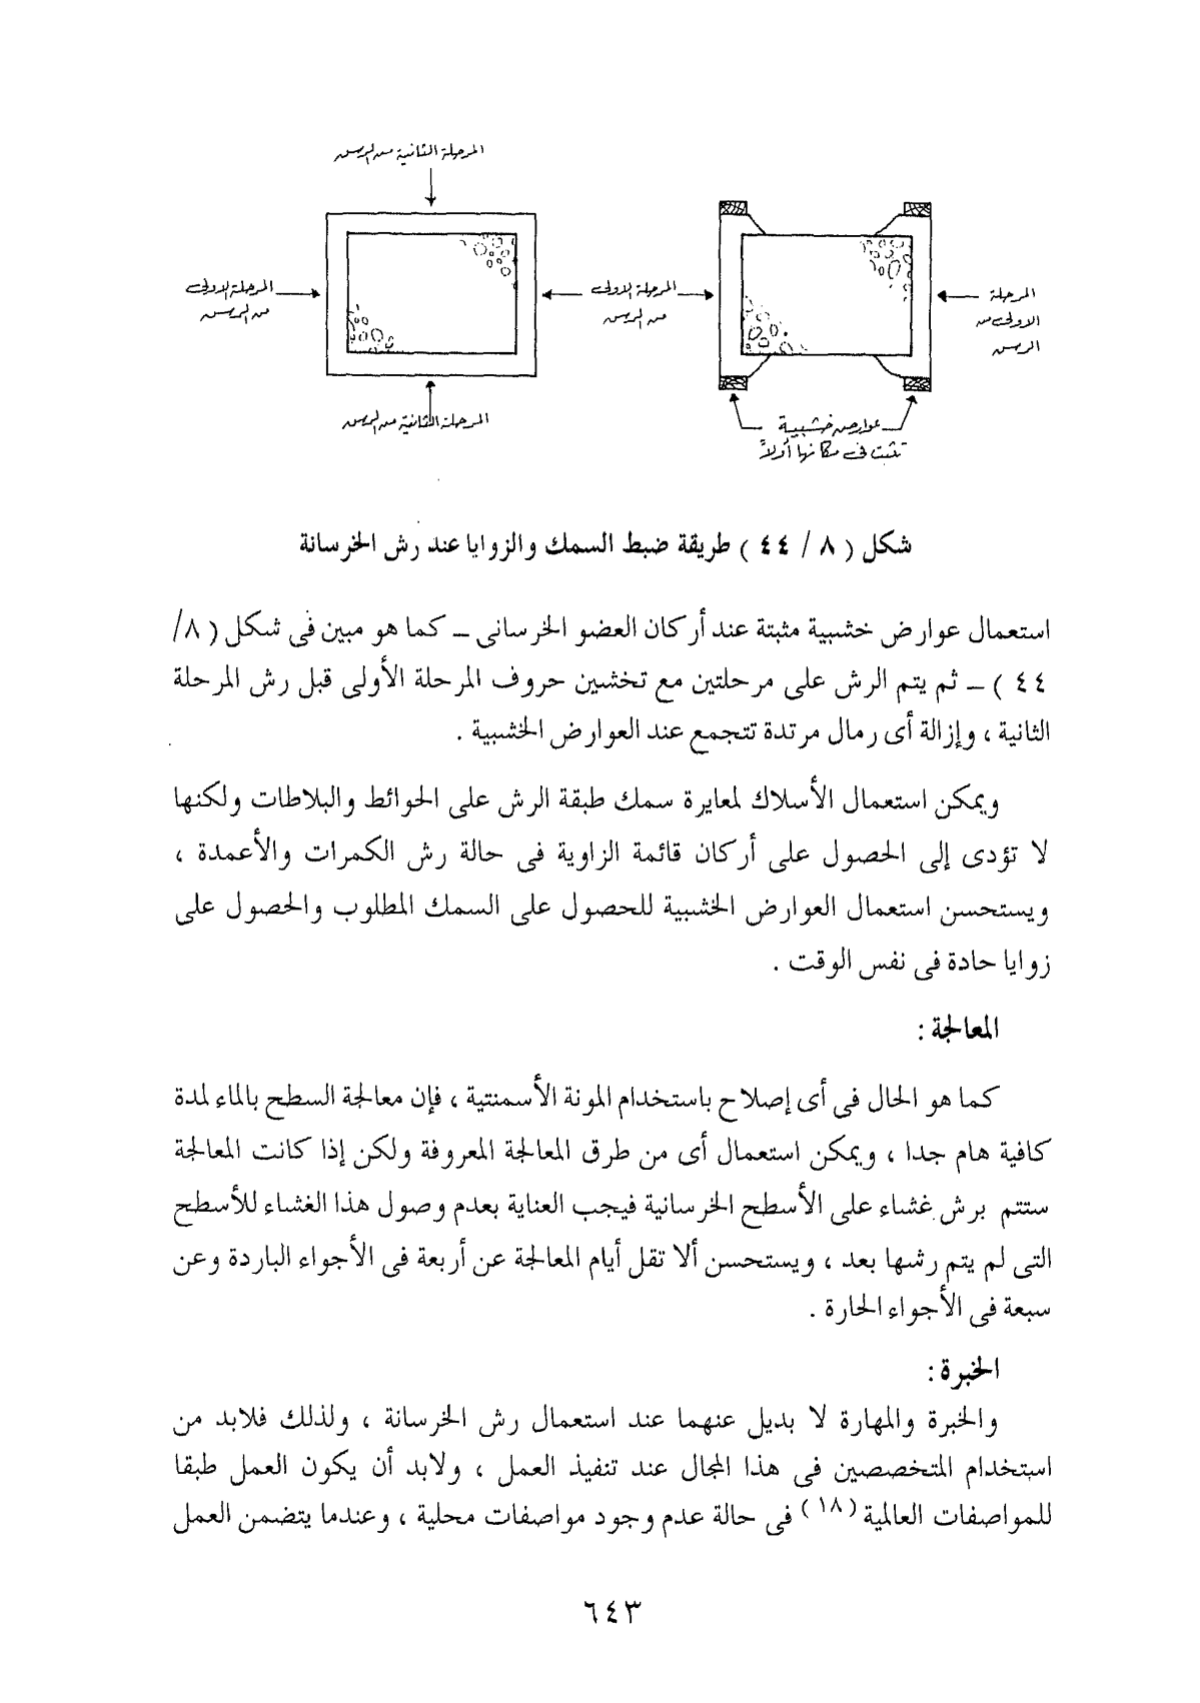 المرحلة الثانية من الرش
المرحلة الاولى
من الرش
المرحلة الاولى
من الرش
المرحلة
الاولى من
الرش
المرحلة الثانية من الرش
عوارض خشبية
تثبت فى مكانها أولاً
شكل ( ٨ / ٤٤ ) طريقة ضبط السمك والزوايا عند رش الخرسانة
استعمال عوارض خشبية مثبتة عند أركان العضو الخرسانى – كما هو مبين فى شكل ( ٨/
٤٤ ) – ثم يتم الرش على مرحلتين مع تخشين حروف المرحلة الأولى قبل رش المرحلة
الثانية ، وإزالة أى رمال مرتدة تتجمع عند العوارض الخشبية .
ويمكن استعمال الأسلاك لمعايرة سمك طبقة الرش على الحوائط والبلاطات ولكنها
لا تؤدى إلى الحصول على أركان قائمة الزاوية فى حالة رش الكمرات والأعمدة ،
ويستحسن استعمال العوارض الخشبية للحصول على السمك المطلوب والحصول على
زوايا حادة فى نفس الوقت .
المعالجة :
كما هو الحال فى أى إصلاح باستخدام المونة الأسمنتية ، فإن معالجة السطح بالماء لمدة
كافية هام جدا ، ويمكن استعمال أى من طرق المعالجة المعروفة ولكن إذا كانت المعالجة
ستتم برش غشاء على الأسطح الخرسانية فيجب العناية بعدم وصول هذا الغشاء للأسطح
التى لم يتم رشها بعد ، ويستحسن ألا تقل أيام المعالجة عن أربعة فى الأجواء الباردة وعن
سبعة فى الأجواء الحارة .
الخبرة :
والخبرة والمهارة لا بديل عنهما عند استعمال رش الخرسانة ، ولذلك فلابد من
استخدام المتخصصين فى هذا المجال عند تنفيذ العمل ، ولابد أن يكون العمل طبقا
للمواصفات العالمية (١٨) فى حالة عدم وجود مواصفات محلية ، وعندما يتضمن العمل
٦٤٣